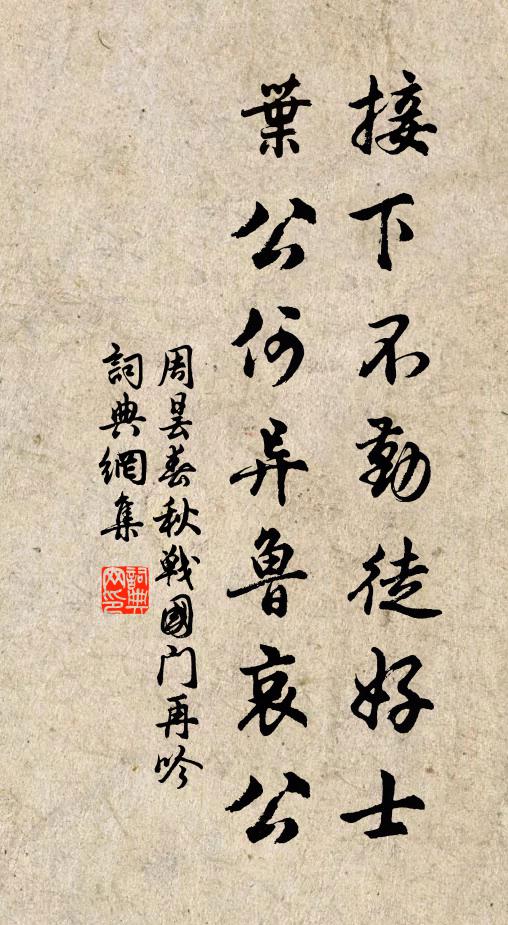 接下不勤徒好士
葉公何异魯哀公
周昙春秋戰國门再吟
詞典網集
詞典
网印